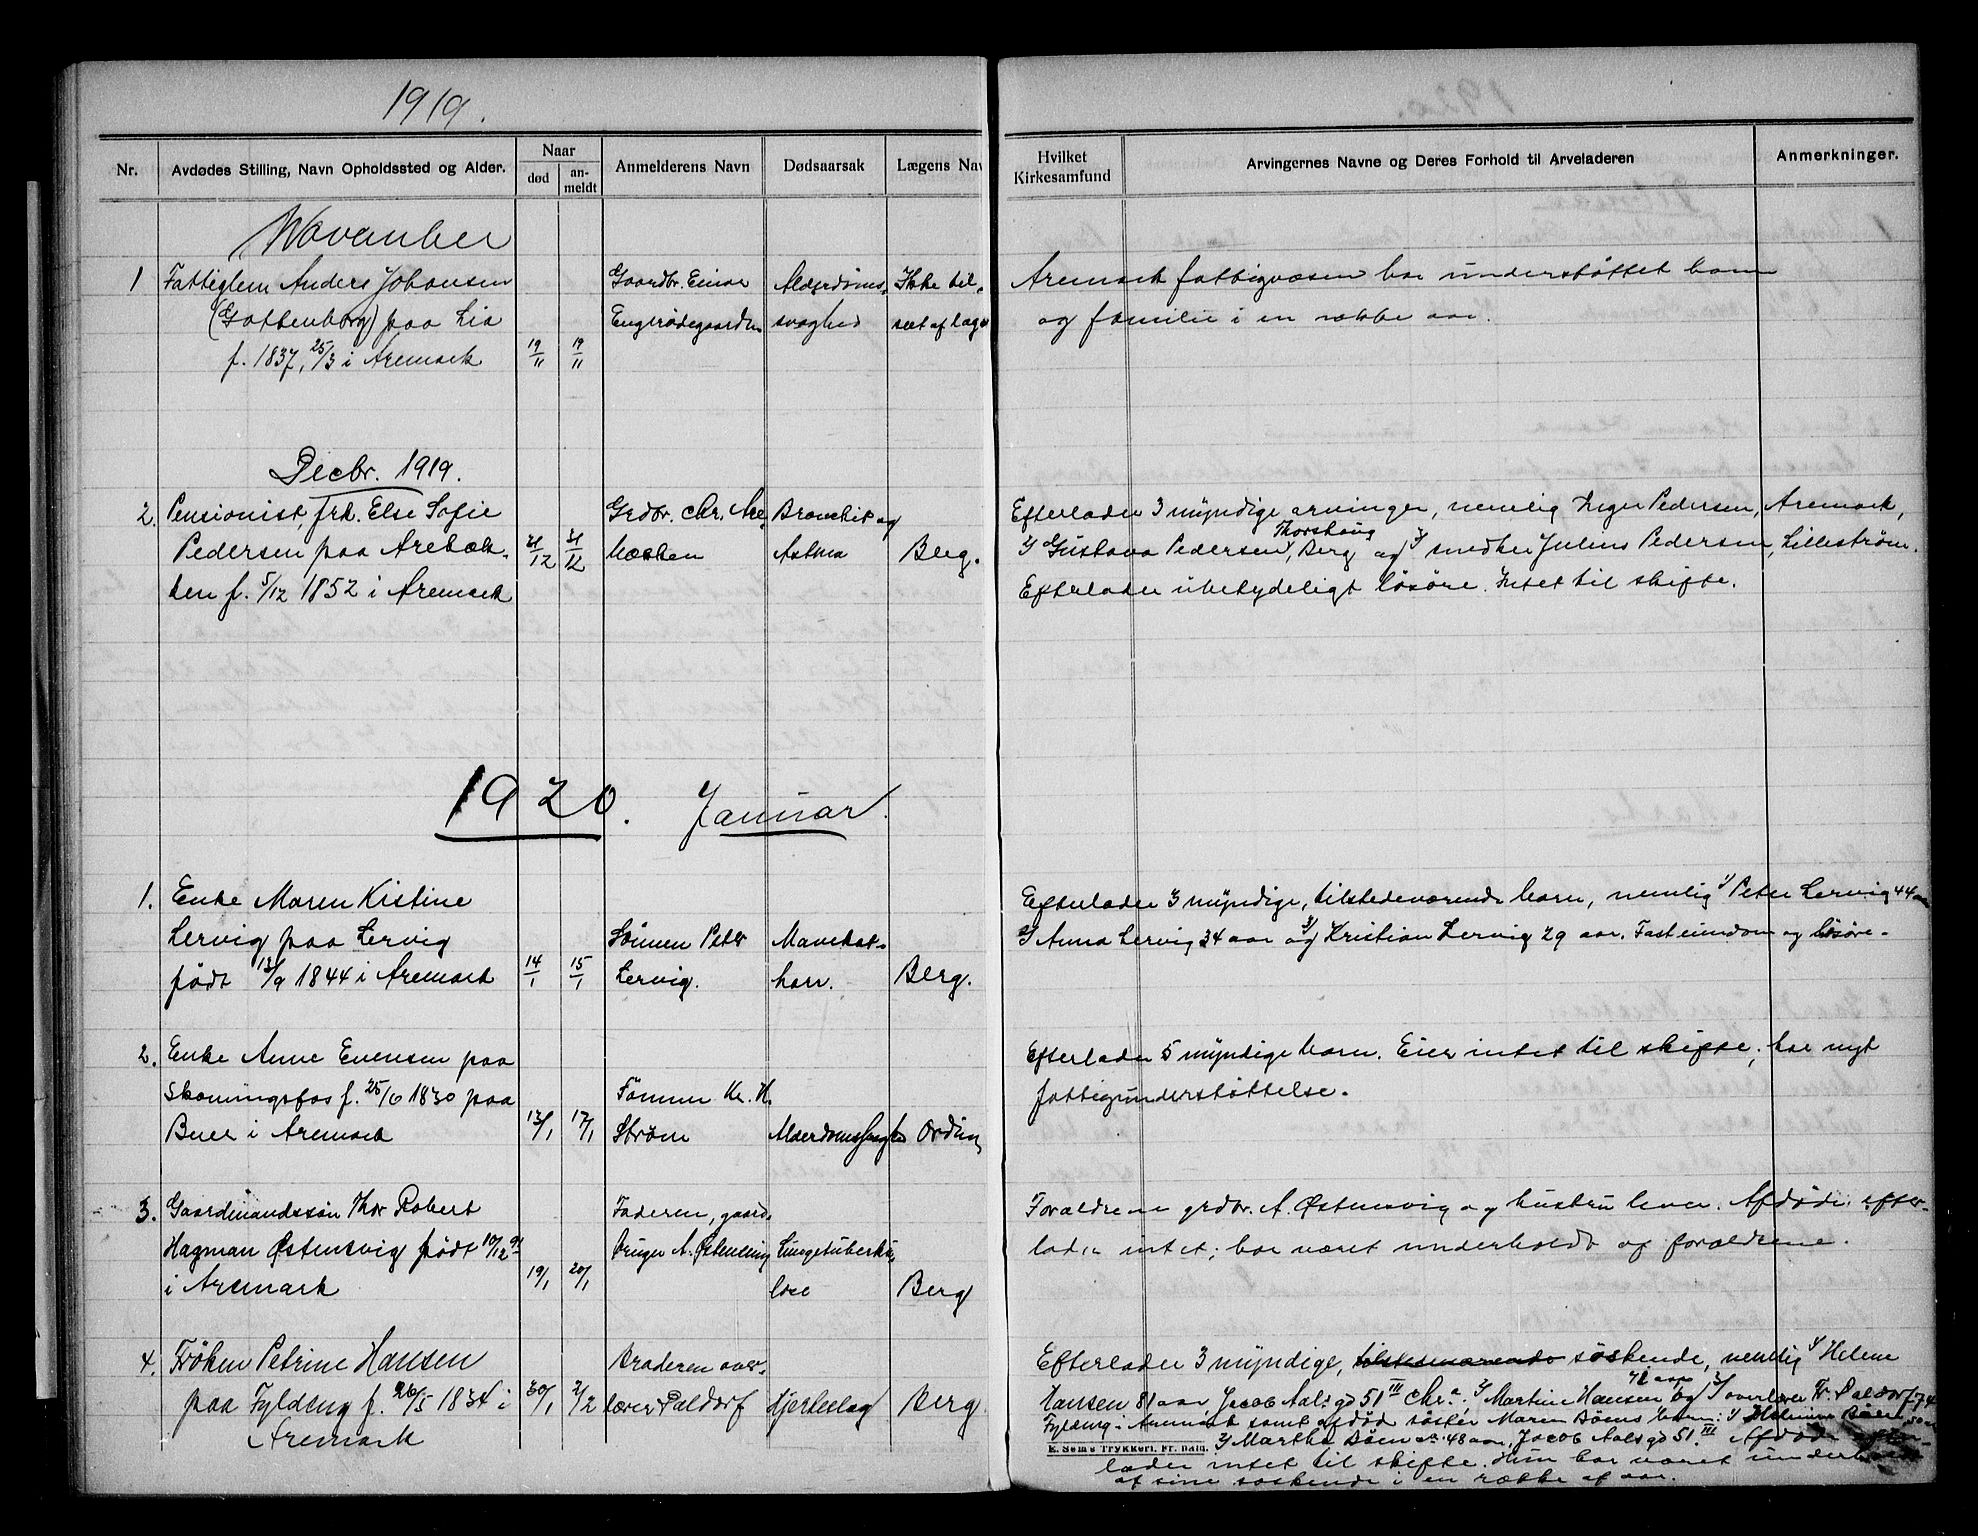 1919.
Nr.
Avdødes Stilling, Navn Opholdssted og Alder.
Naar
død
an-
meldt
Anmelderens Navn
Dødsaarsak
Lægens Nav
Hvilket
Kirkesamfund
Arvingernes Navne og Deres Forhold til Arveladeren
Anmerkninger.
November
1 Fattiglem Anders Johansen
(Gottenborg) paa Lia
f. 1837, 25/3 i Aremark
19/11
19/11
Gaardbr. Einar
Engerødegaarden
Alderdoms-
svaghed
Ikke til-
set af læge
Aremark fattigvæsen har understøttet ham
og familie i en række aar.
Decbr. 1919.
2. Pensionist, frk. Else Sofie
Pedersen paa Arebæk-
ken f. 5/12 1852 i Aremark
21/12
21/12
Grdbr. Chr. Are-
bækken
Bronchit og
Astma
Berg.
Efterlader 3 myndige arvinger, nemlig Inger Pedersen, Aremark,
2/ Gustava Pedersen, Thorshaug, Berg og 3/ snedker Julius Pedersen, Lillestrøm.
Efterlader ubetydeligt løsøre. Intet til skifte.
1920. Januar.
1. Enke Maren Kistine
Lervig paa Lervig
født 13/9 1844 i Aremark
14/1
15/1
Sönnen Peter
Lervig.
Mavekat-
harr.
Berg.
Efterlader 3 myndige, tilstedeværende barn, nemlig 1/ Peter Lervig 44 aar
2/ Anna Lervig 34 aar og 3/ Kristian Lervig 29 aar. Fast eiendom og løsøre.
2. Enke Anne Evensen paa
Skomingsfos f. 25/6 1830 paa
Buer i Aremark
13/1
17/1
Kr. H.
Strøm
Ording
Efterlader 5 myndige barn. Eier intet til skifte; har nyt
fattigunderstøttelse.
3. Gaardmandssøn Thor Robert
Hagman Østensvig født 10/12 91
i Aremark
19/1
20/1
Faderen, gaard-
bruger A. Østensvig
Lungetuberku-
lose
Berg
Forældrene grdbr. A. Østensvig og hustru lever. Afdøde efter-
lader intet; har været underholdt af forældrene.
4. Frøken Petrine Hansen
paa Fyldeng f. 26/5 1834 i
Aremark
30/1
2/2
Broderen over-
lærer Paldorf
Hjerteslag
Berg
Efterlader 3 myndige, tilstedeværende søskende, nemlig 1/ Helene
Hansen 81 aar, Jacob Aalsgd 51 III Chr.a 2/ Martine Hansen 72 aar og 3/ overlærer Fr. Paldorf 74
Fyldeng i Aremark samt afdød søster Maren Böens barn: 1/ Böen 50 aar
2/ Martha Böen 48 aar, Jacob Aalsgd 51 III Afdøde efter-
E. Sems Trykkeri, Fr. hald.
lader intet til skifte. Hun har været underholdt
af sine søskende i en række af aar.